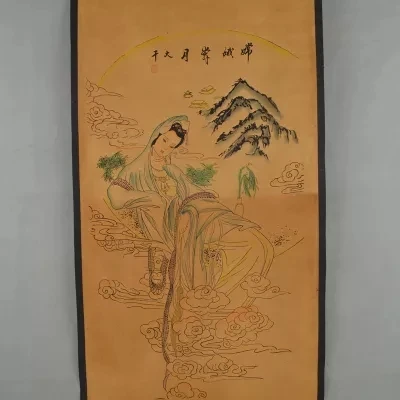 嫦娥奔月大千